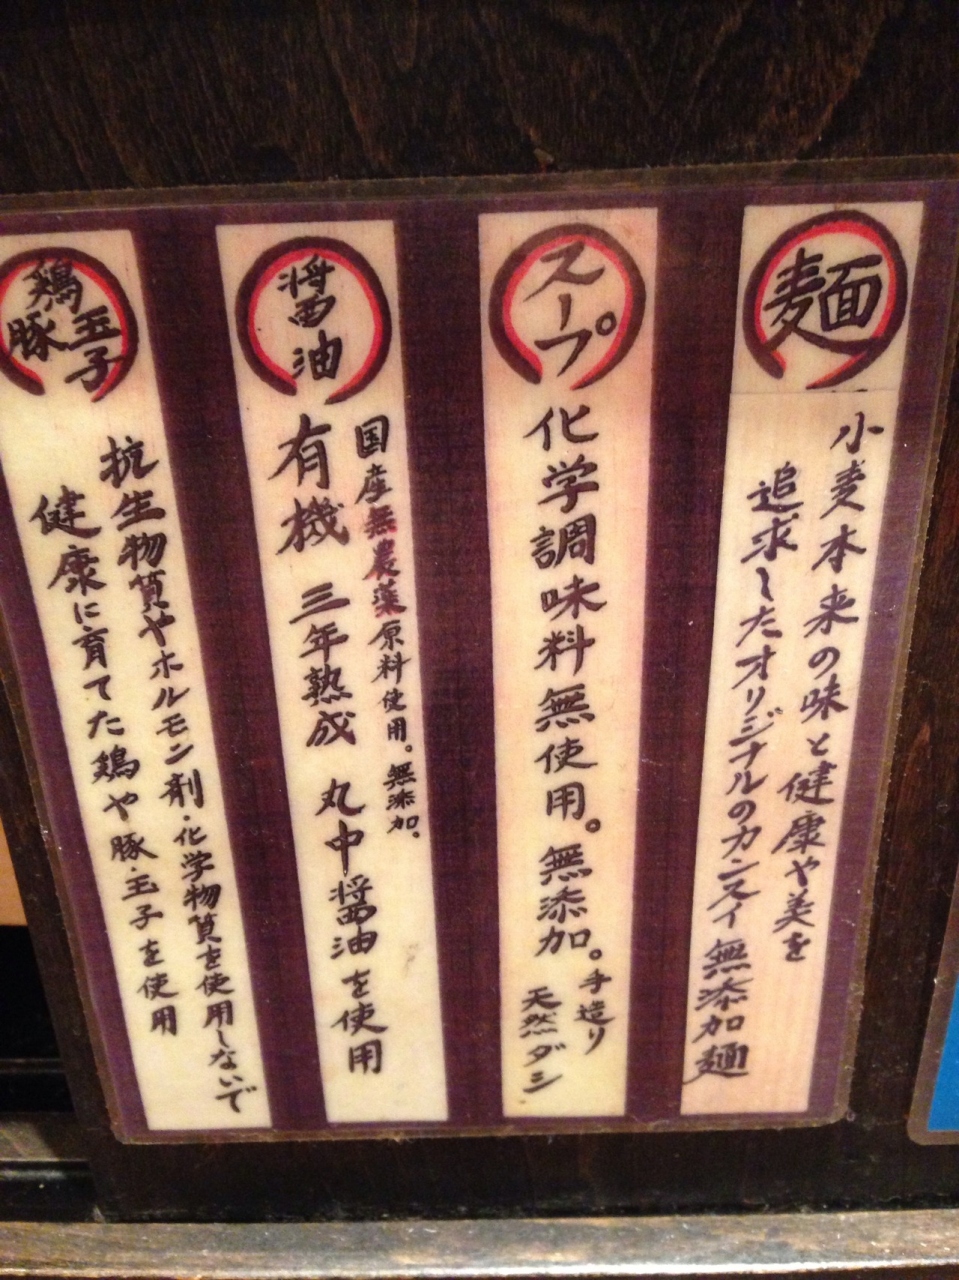 麺
小麦本来の味と健康や美を
追求したオリジナルのカンスイ無添加麺
スープ
化学調味料無使用。無添加。
手造り
天然ダシ
醤油
国産無農薬原料使用。無添加。
有機 三年熟成 丸中醤油を使用
鶏
豚
玉子
抗生物質やホルモン剤・化学物質を使用しないで
健康に育てた鶏や豚・玉子を使用